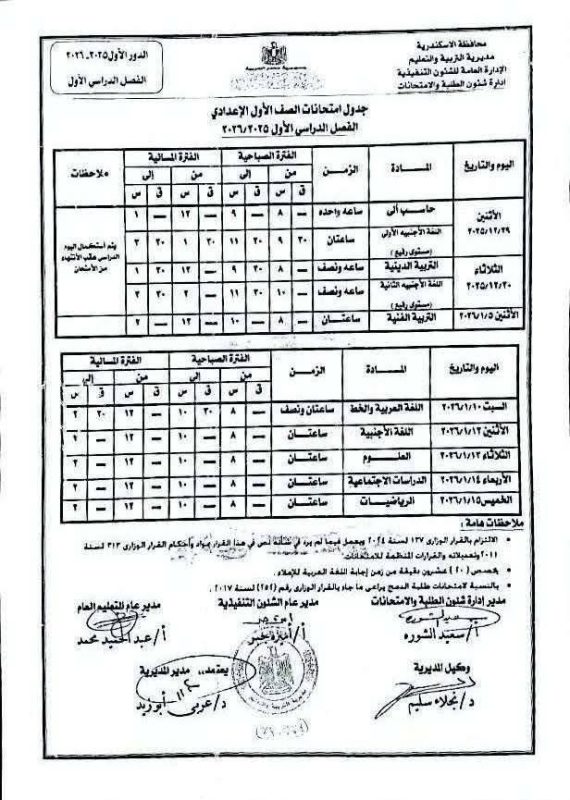 محافظة الاسكندرية
مديرية التربية والتعليم
الإدارة العامة للشئون التنفيذية
إدارة شئون الطلبة والامتحانات
الدور الأول ٢٠٢٥ـ ٢٠٢٦
الفصل الدراسي الأول
جدول امتحانات الصف الأول الإعدادي
الفصل الدراسي الأول ٢٠٢٦/٢٠٢٥
اليوم والتاريخ المـــادة الزمن الفترة الصباحية الفترة المسائية ملاحظات
من إلى من إلى
ق س ق س ق س ق س
الأثنين ٢٠٢٥/١٢/٢٩ حاسب ألى ساعه واحده — ٨ — ٩ — ١٢ — ١
اللغة الأجنبيه الأولى (مستوى رفيع) ساعتان ٣٠ ٩ ٣٠ ١١ ٣٠ ١ ٣٠ ٣
يتم أستكمال اليوم الدراسى عقب الأنتهاء من الأمتحان
الثلاثاء ٢٠٢٥/١٢/٣٠ التربية الدينية ساعه ونصف — ٨ ٣٠ ٩ — ١٢ ٣٠ ١
اللغة الأجنبيه الثانية (مستوى رفيع) ساعه ونصف — ١٠ ٣٠ ١١ — ٢ ٣٠ ٣
الأثنين ٢٠٢٦/١/٥ التربية الفنية ساعتـــان — ٨ — ١٠ — ١٢ — ٢
اليوم والتاريخ المـــادة الزمن الفترة الصباحية الفترة المسائية
من إلى من إلى
ق س ق س ق س ق س
السبت ٢٠٢٦/١/١٠ اللغة العربية والخط ساعتان ونصف — ٨ ٣٠ ١٠ — ١٢ ٣٠ ٢
الأثنين ٢٠٢٦/١/١٢ اللغة الأجنبية ساعتـــان — ٨ — ١٠ — ١٢ — ٢
الثلاثاء ٢٠٢٦/١/١٣ العلـــوم ساعتـــان — ٨ — ١٠ — ١٢ — ٢
الأربعاء ٢٠٢٦/١/١٤ الدراسات الاجتماعية ساعتـــان — ٨ — ١٠ — ١٢ — ٢
الخميس ٢٠٢٦/١/١٥ الرياضيات ساعتـــان — ٨ — ١٠ — ١٢ — ٢
ملاحظات هامة :
الالتزام بالقرار الوزارى ١٣٧ لسنة ٢٠٢٤ ويعمل فيما لم يرد فى شأنه نص فى هذا القرار بمواد وأحكام القرار الوزارى ٣١٣ لسنة
٢٠١١ وتعديلاته والقرارات المنظمة للامتحانات
يخصص (٢٠) عشرون دقيقة من زمن إجابة اللغة العربية للإملاء .
بالنسبة لامتحانات طلبة الدمج يراعى ما جاء بالقرار الوزارى رقم (٢٥٢) لسنة ٢٠١٧ .
مدير إدارة شئون الطلبة والامتحانات
أ/ سعيد الشوره
مدير عام الشئون التنفيذية
مدير عام التعليم العام
أ/ عبد الحميد محمد
وكيل المديرية
د/ نجلاء سليم
يعتمد،،، مدير المديرية
د/ عربى أبوزيد